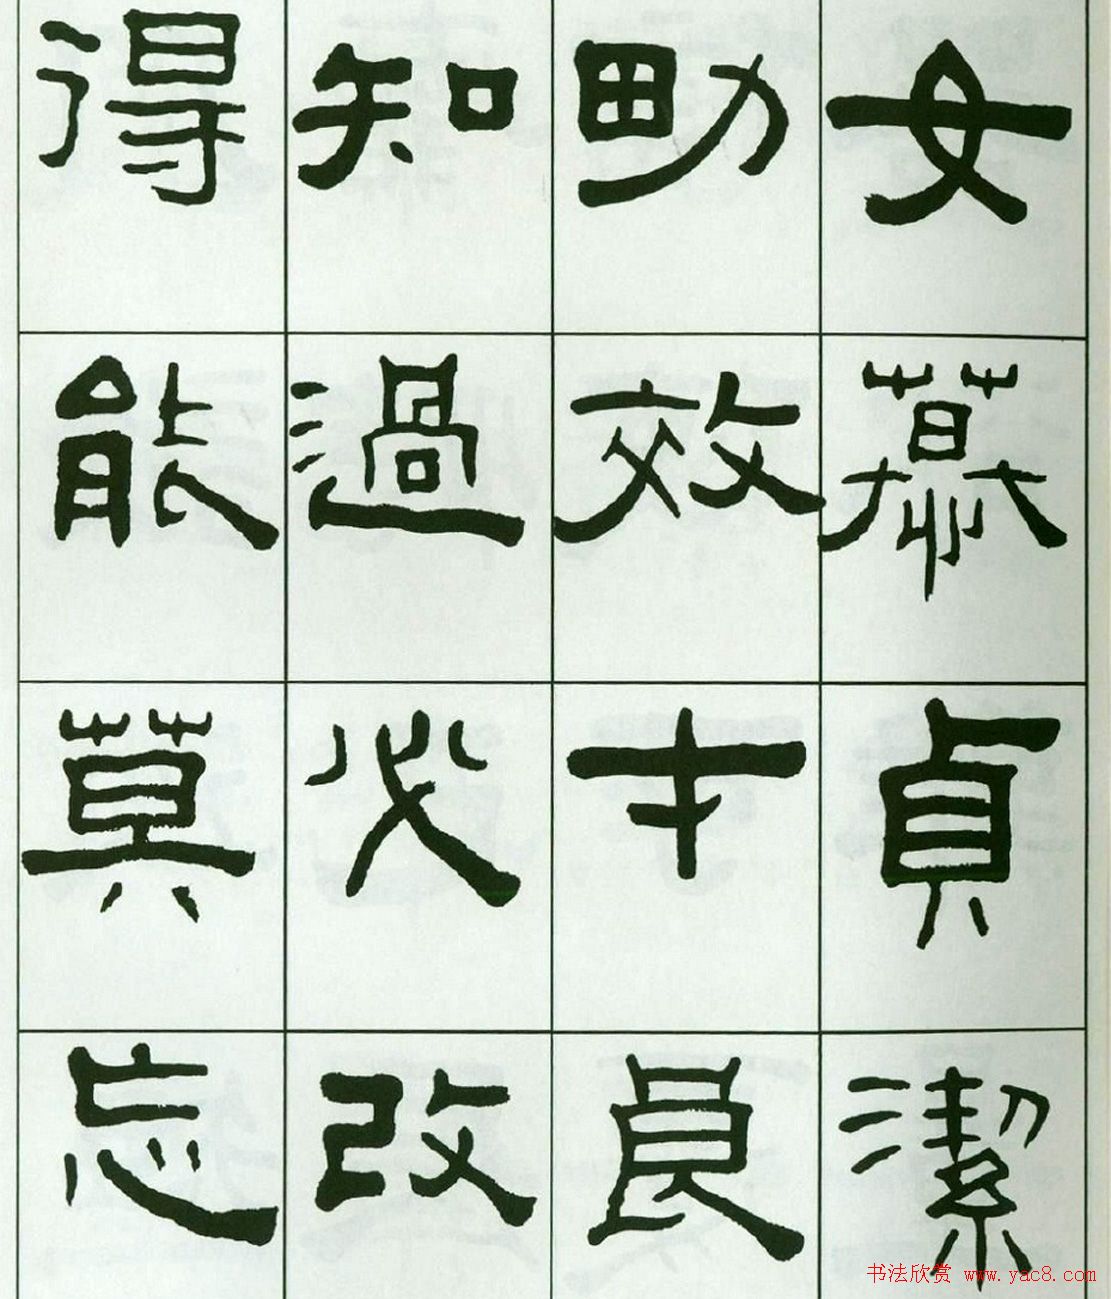 女慕貞潔
男效才良
知過必改
得能莫忘
书法欣赏 www.yac8.com